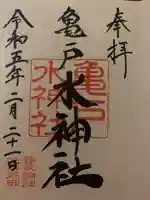 奉拝
亀戸水神社
亀戸
水神社
令和五年二月二十一日